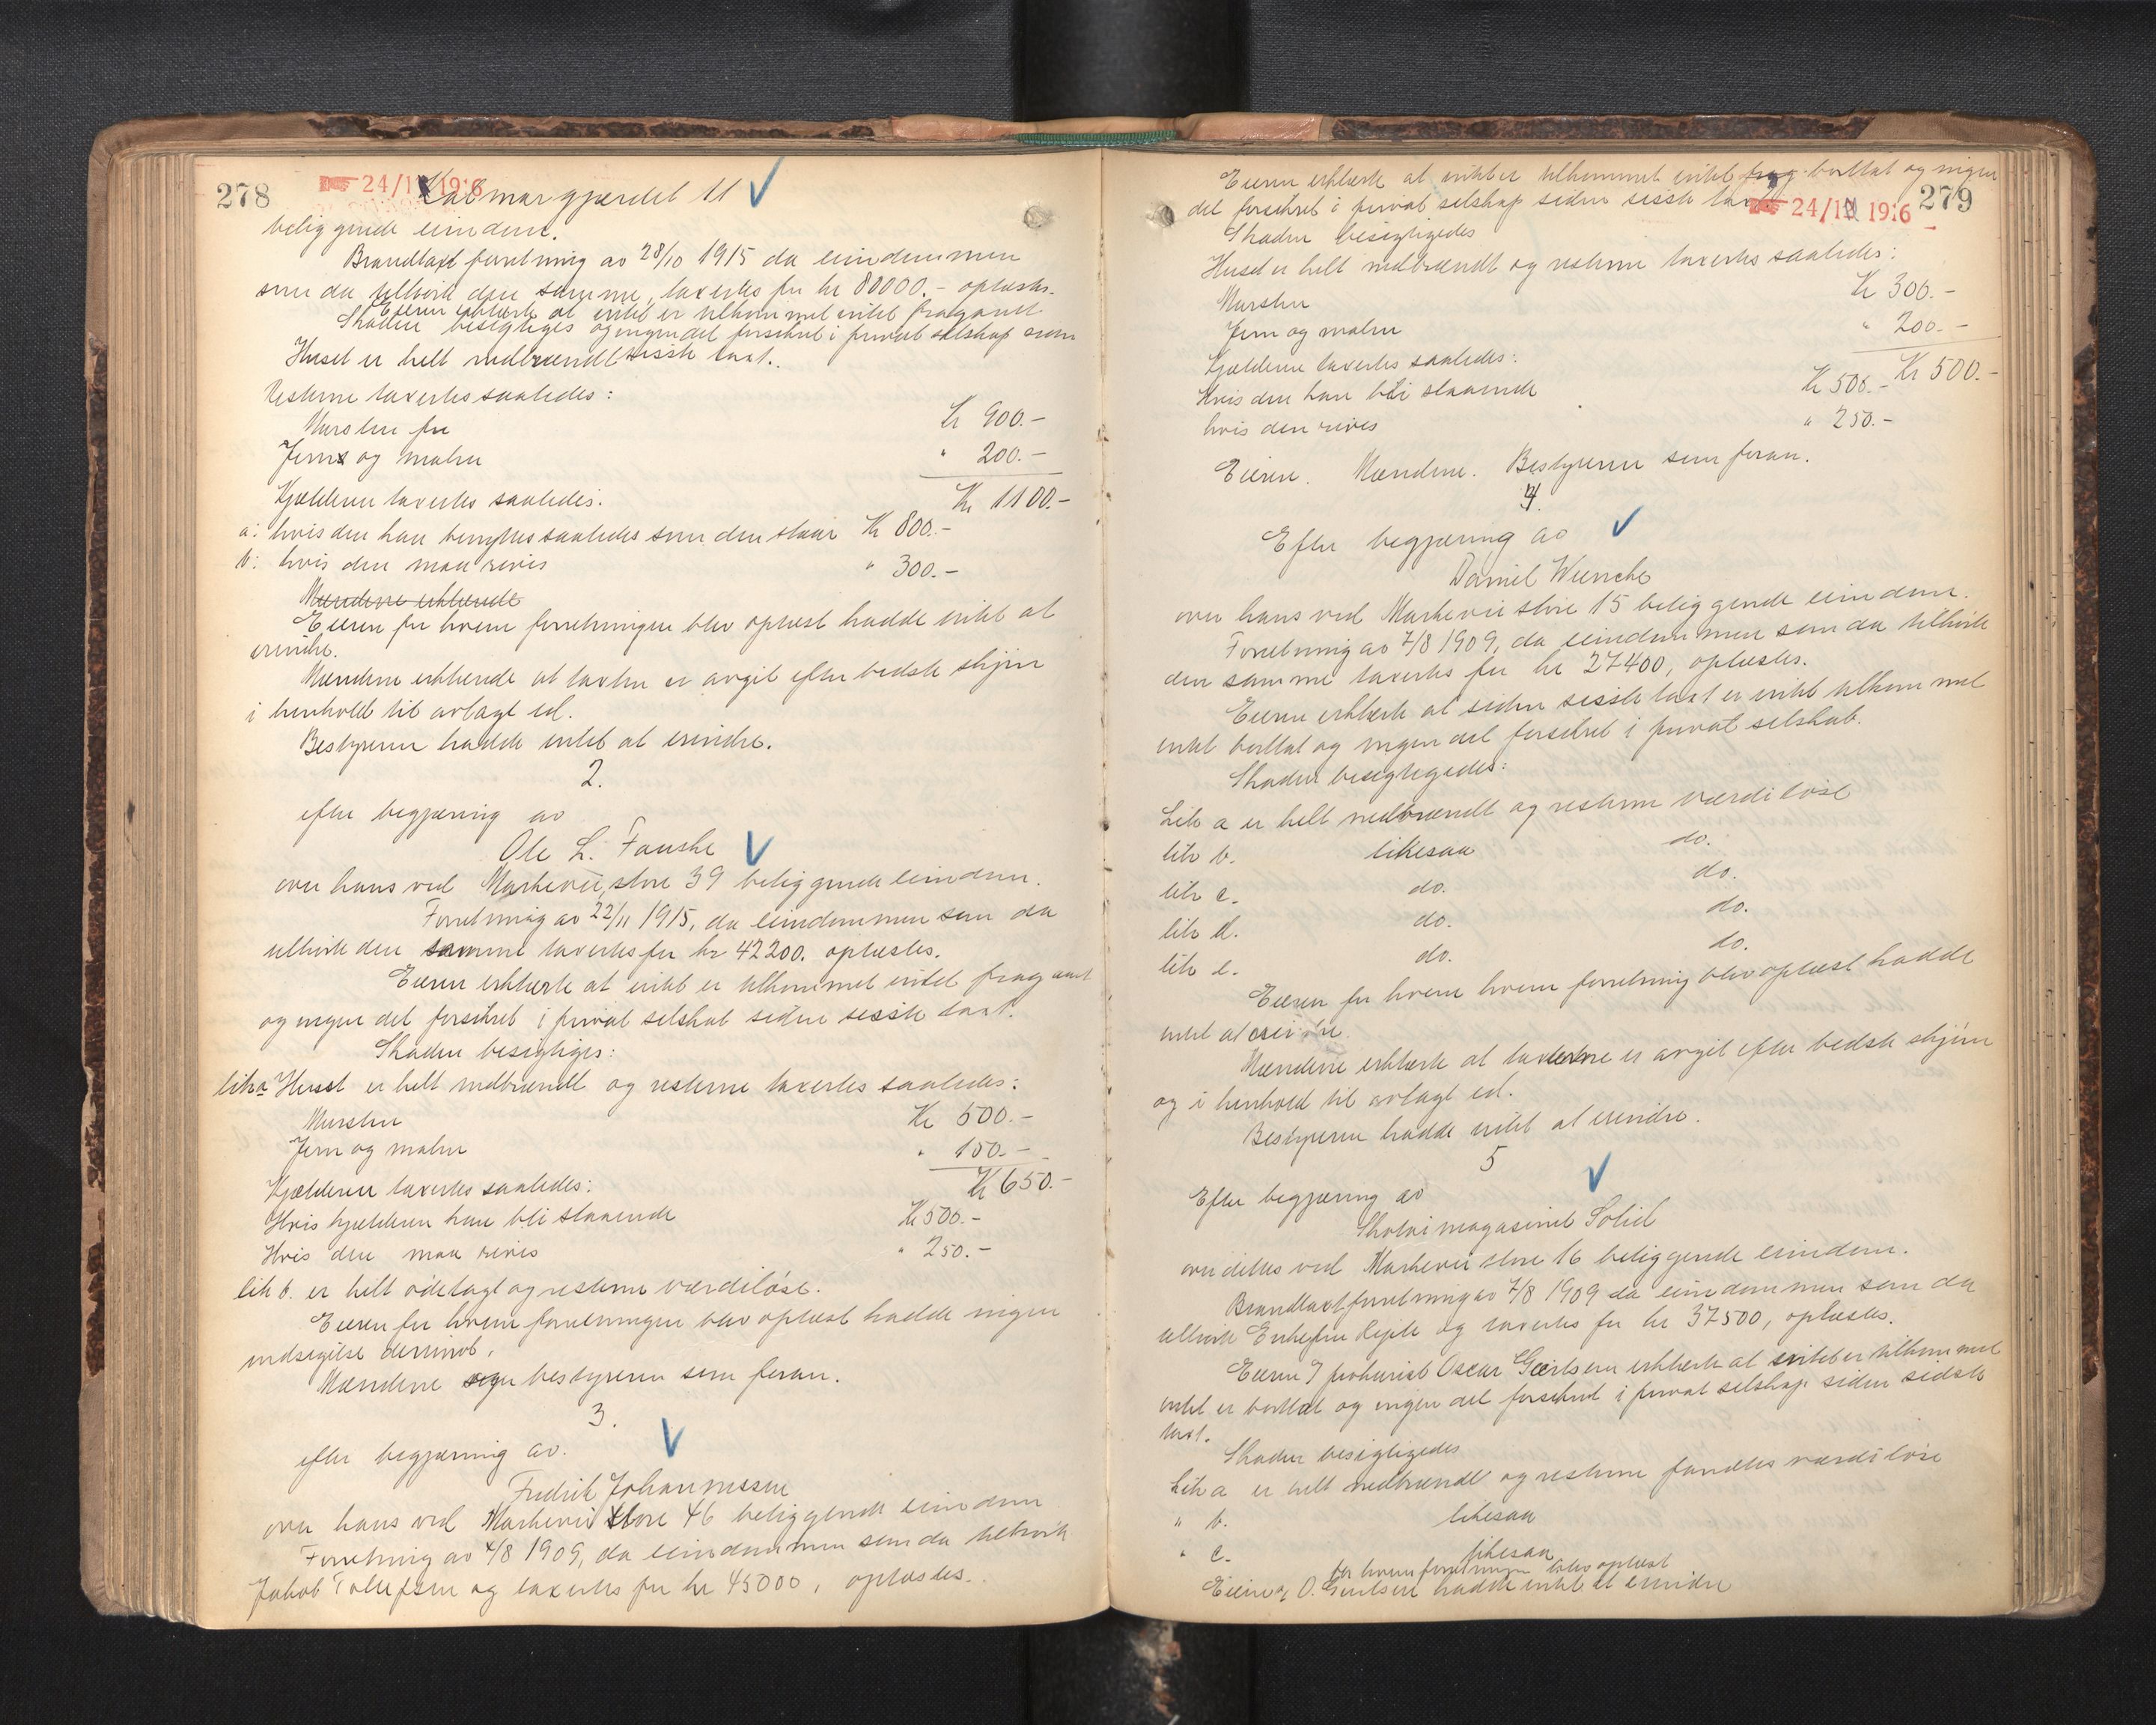 278
24/1 1916
Kalmargjærdet 11
beliggende eiendom.
Brandtaxt forretning av 28/10 1915 da eiendommen
som da tilhørte den samme, taxertes for kr 80000.- oplæstes.
Eieren erklærte at intet er tilkommet intet fragaaet
Skaden besigtiges og ingen del forsikret i privat selskap siden
Huset er helt nedbrændt sisste taxt.
Resterne taxertes saaledes:
Mursten for Kr 900.-
Jern og malm " 200.-
Kr 1100.-
Kjælderen taxertes saaledes.
a: hvis den kan benyttes saaledes som den staar Kr 800.-
b: hvis den maa rives " 300.-
Mændene erklærede
Eieren for hvem forretningen blev oplæst hadde intet at
erindre.
Mændene erklærede at taxten er avgit efter bedste skjøn
i henhold til avlagt ed.
Bestyreren hadde intet at erindre.
2.
efter begjæring av
Ole L. Fauske
over hans ved Markevei store 39 beliggende eiendom.
Forretning av 22/11 1915, da eiendommen som da
tilhørte den samme taxertes for kr 42200. oplæstes.
Eieren erklærte at intet er tilkommet intet fragaaet
og ingen del forsikret i privat selskab siden sisste taxt.
Skaden besigtiges:
litr a Huset er helt nedbrændt og resterne taxertes saaledes:
Mursten Kr 500.-
Jern og malm " 150.-
Kr 650.-
Kjælderen taxertes saaledes:
Hvis kjælderen kan bli staaende Kr 500.-
Hvis den maa rives " 250.-
litr b. er helt ødelagt og resterne værdiløse.
Eieren for hvem forretningen blev oplæst hadde ingen
indsigelse derimot.
Mændene og bestyreren som foran.
3.
efter begjæring av.
Fredrik Johannessen
over hans ved Markevei store 46 beliggende eiendom
Forretning av 4/8 1909, da eiendommen som da tilhørte
Jakob Tollefsen og taxertes for kr 45000, oplæstes.
279
24/1 1916
Eieren erklærte at intet er tilkommet intet frag. borttat og ingen
del forsikret i privat selskap siden sisste taxt.
Skaden besigtigedes
Huset er helt nedbrændt og resterne taxertes saaledes:
Mursten Kr 300.-
Jern og malm " 200.-
Kr 500.-
Kjælderen taxertes saaledes:
Hvis den kan bli staaende Kr 500.-
hvis den rives " 250.-
Eieren. Mændene. Bestyreren som foran.
4.
Efter begjæring av
Daniel Wiencke
over hans ved Markevei store 15 beliggende eiendom.
Forretning av 7/8 1909, da eiendommen som da tilhørte
den samme taxertes for kr 27400, oplæstes.
Eieren erklærte at siden sisste taxt er intet tilkommet
intet borttat og ingen del forsikret i privat selskab.
Skaden besigtigedes:
Litr a er helt nedbrændt og resterne værdiløse
litr b. likesaa do.
litr c. do. do.
litr d. do. do.
litr e. do. do.
Eieren for hvem hvem forretning blev oplæst hadde
intet at erindre.
Mændene erklærte at taxterne er avgit efter bedste skjøn
og i henhold til avlagt ed.
Bestyreren hadde intet at erindre.
5
Efter begjæring av
Skotøimagasinet Solid
over dettes ved Markevei store 16 beliggende eiendom.
Brandtaxtforretning av 7/8 1909 da eiendommen som da
tilhørte Enkefru Rejele og taxertes for kr 37500, oplæstes.
Eieren v prokurist Oscar Geertsen erklærte at intet er tilkommet
intet er borttat og ingen del forsikret i privat selskap siden sidste
taxt.
Skaden besigtigedes
Litr a er helt nedbrændt og resterne fandtes værdiløse
" b. likesaa
" c. likesaa
for hvem forretningen blev oplæst
Eieren v O. Geertsen hadde intet at erindre